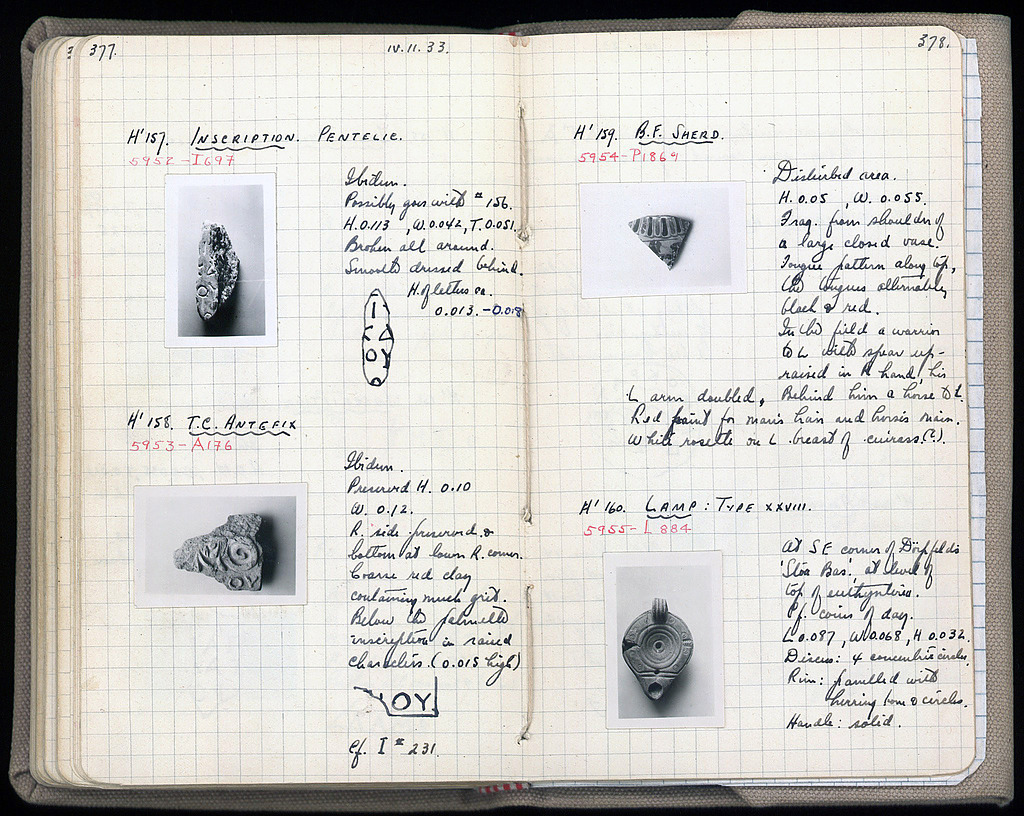 377.
IV.II.33.
H'157. INSCRIPTION. PENTELIC.
5952-I697
Ibidem.
Possibly goes with # 156.
H. 0.113, W. 0.042, T. 0.051.
Broken all around.
Smooth dressed behind.
H. of letters ca.
0.013.-0.018
H'158. T.C. ANTEFIX
5953-A176
Ibidem.
Preserved H. 0.10
W. 0.12.
R. side preserved, &
bottom at lower R. corner.
Coarse red clay
containing much grit.
Below the palmette
inscription in raised
characters. (0.015 high)
ΟΥ
cf. I # 231.
378.
H'159. B.F. SHERD.
5954-P1869
Disturbed area.
H. 0.05, W. 0.055.
Frag. from shoulder of
a large closed vase.
Tongue pattern along top,
the tongues alternately
black & red.
In the field a warrior
to L with spear up-
raised in R hand, his
L arm doubled, Behind him a horse to L.
Red paint for man's hair and horse's main.
White rosette on L breast of cuirass.(?).
H'160. LAMP: TYPE XXVIII.
5955-L 884
At SE corner of Dörpfeld's
'Stoa Bas.' at level of
top of euthynteria.
Cf. coins of day.
L 0.087, W 0.068, H 0.032.
Discus: 4 concentric circles.
Rim: panelled with
herring bone & circles.
Handle: solid.